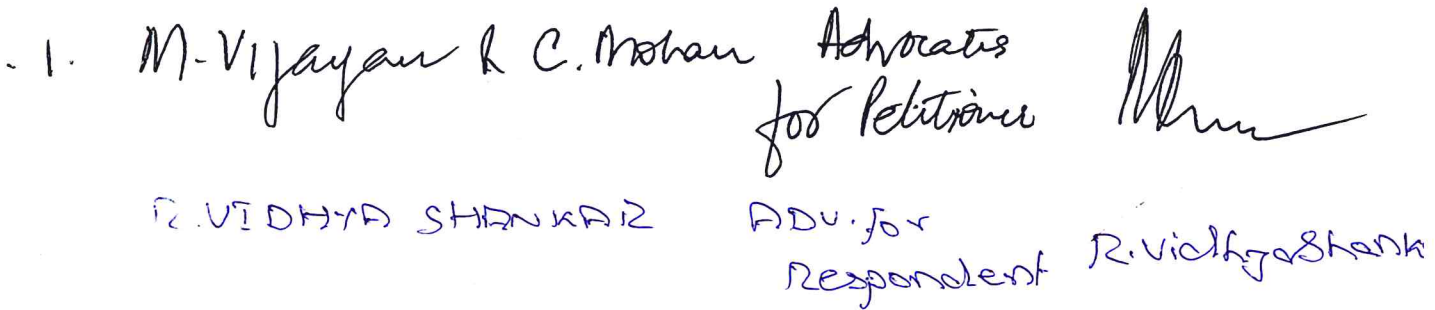 . 1. M. Vijayan & C. Mohan Advocates
for Petitioner
R. VIDHYA SHANKAR ADV. for
Respondent R. VidhyaShank